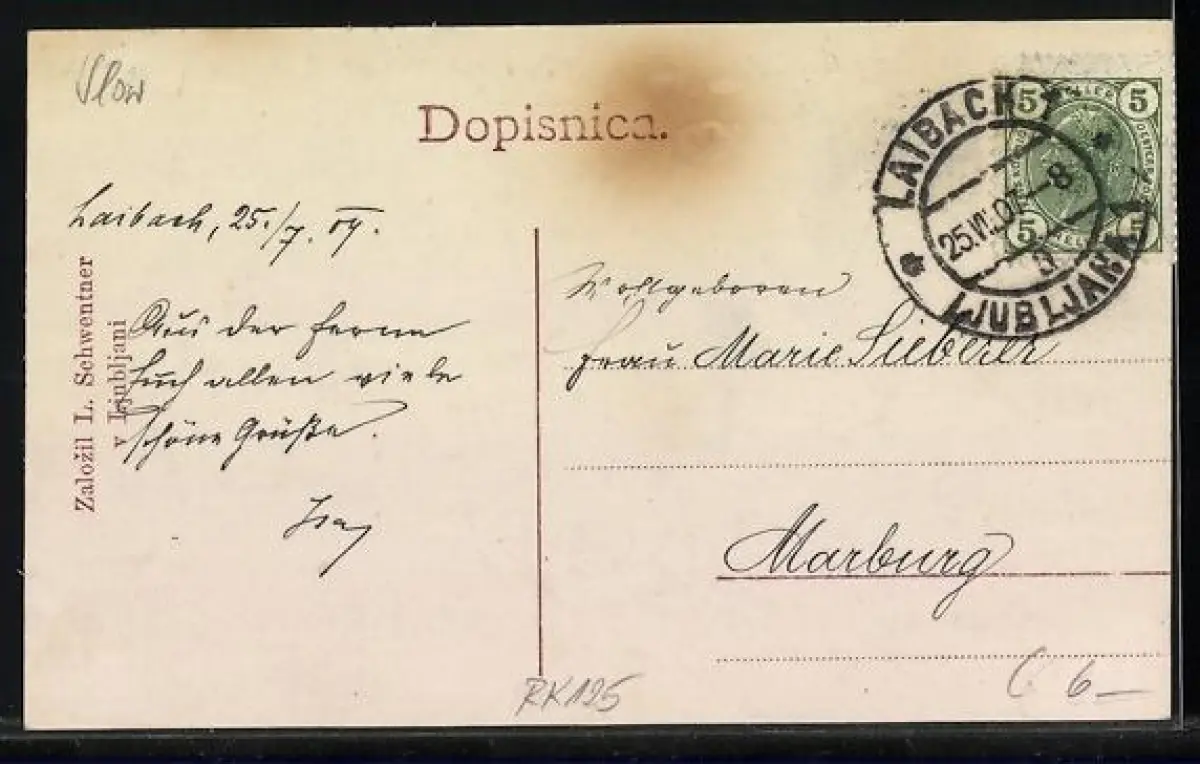 Slow
Dopisnica.
LAIBACH
25.VII.07-8
LJUBLJANA
5 5
5 5
Laibach, 25./7. 07.
Aus der Ferne
Euch allen viele
schöne Grüße.
Založil L. Schwentner
v Ljubljani
Wohlgeboren
Frau Marie Sieberer
Marburg
RK125
6—